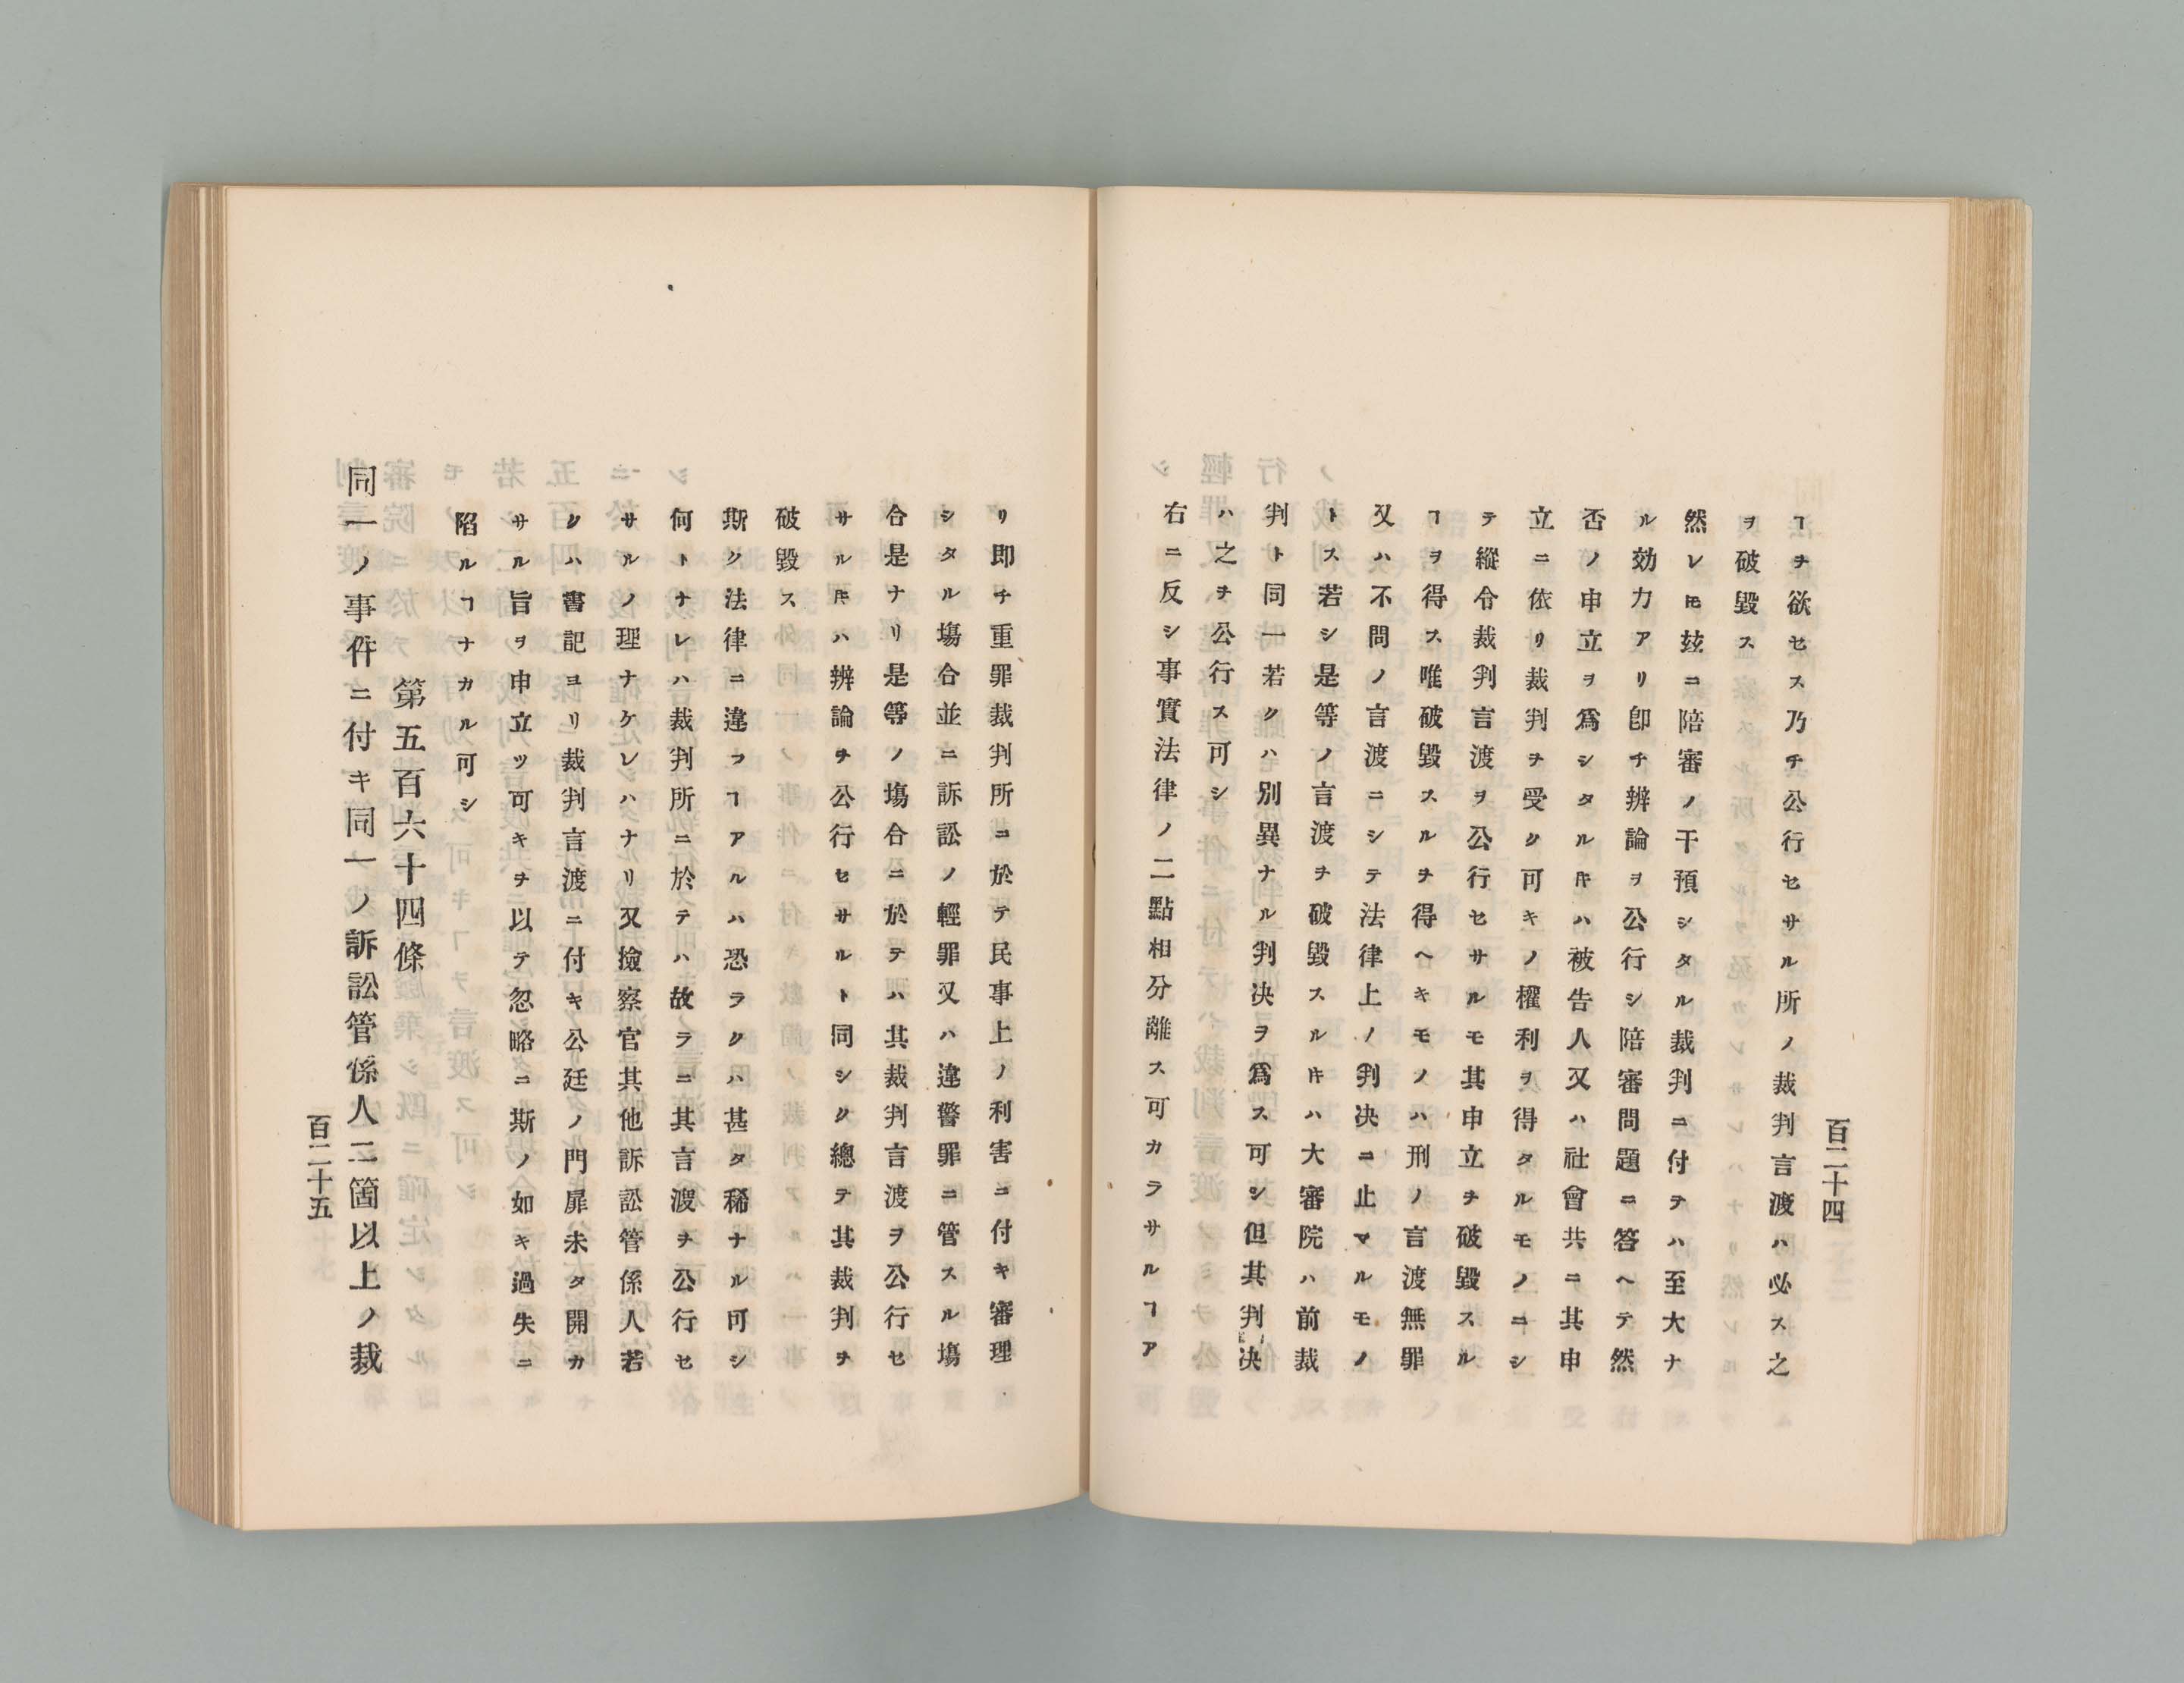 百二十四
ヿヲ欲セス乃チ公行セサル所ノ裁判言渡ハ必ス之
ヲ破毀ス
然レ𪜈玆ニ陪審ノ干預シタル裁判ニ付テハ至大ナ
ル効力アリ卽チ辨論ヲ公行シ陪審問題ニ答ヘテ然
否ノ申立ヲ爲シタルキハ被告人又ハ社會共ニ其申
立ニ依リ裁判ヲ受ク可キノ權利ヲ得タルモノニシ
テ縱令裁判言渡ヲ公行セサルモ其申立ヲ破毀スル
ヿヲ得ス唯破毀スルヲ得ヘキモノハ刑ノ言渡無罪
又ハ不問ノ言渡ニシテ法律上ノ判决ニ止マルモノ
トス若シ是等ノ言渡ヲ破毀スルキハ大審院ハ前裁
判ト同一若クハ別異ナル判决ヲ爲ス可シ但其判决
ハ之ヲ公行ス可シ
右ニ反シ事實法律ノ二點相分離ス可カラサルヿア
リ即チ重罪裁判所ニ於テ民事上ノ利害ニ付キ審理
シタル塲合並ニ訴訟ノ輕罪又ハ違警罪ニ管スル塲
合是ナリ是等ノ塲合ニ於テハ其裁判言渡ヲ公行セ
サルキハ辨論ヲ公行セサルト同シク總テ其裁判ヲ
破毀ス
斯ク法律ニ違フヿアルハ恐ラクハ甚タ稀ナル可シ
何トナレハ裁判所ニ於テハ故ラニ其言渡ヲ公行セ
サルノ理ナケレハナリ又撿察官其他訴訟管係人若
クハ書記ヨリ裁判言渡ニ付キ公廷ノ門扉未タ開カ
サル旨ヲ申立ツ可キヲ以テ忽略ニ斯ノ如キ過失ニ
陷ルヿナカル可シ
第五百六十四條
同一ノ事件ニ付キ同一ノ訴訟管係人二箇以上ノ裁
百二十五